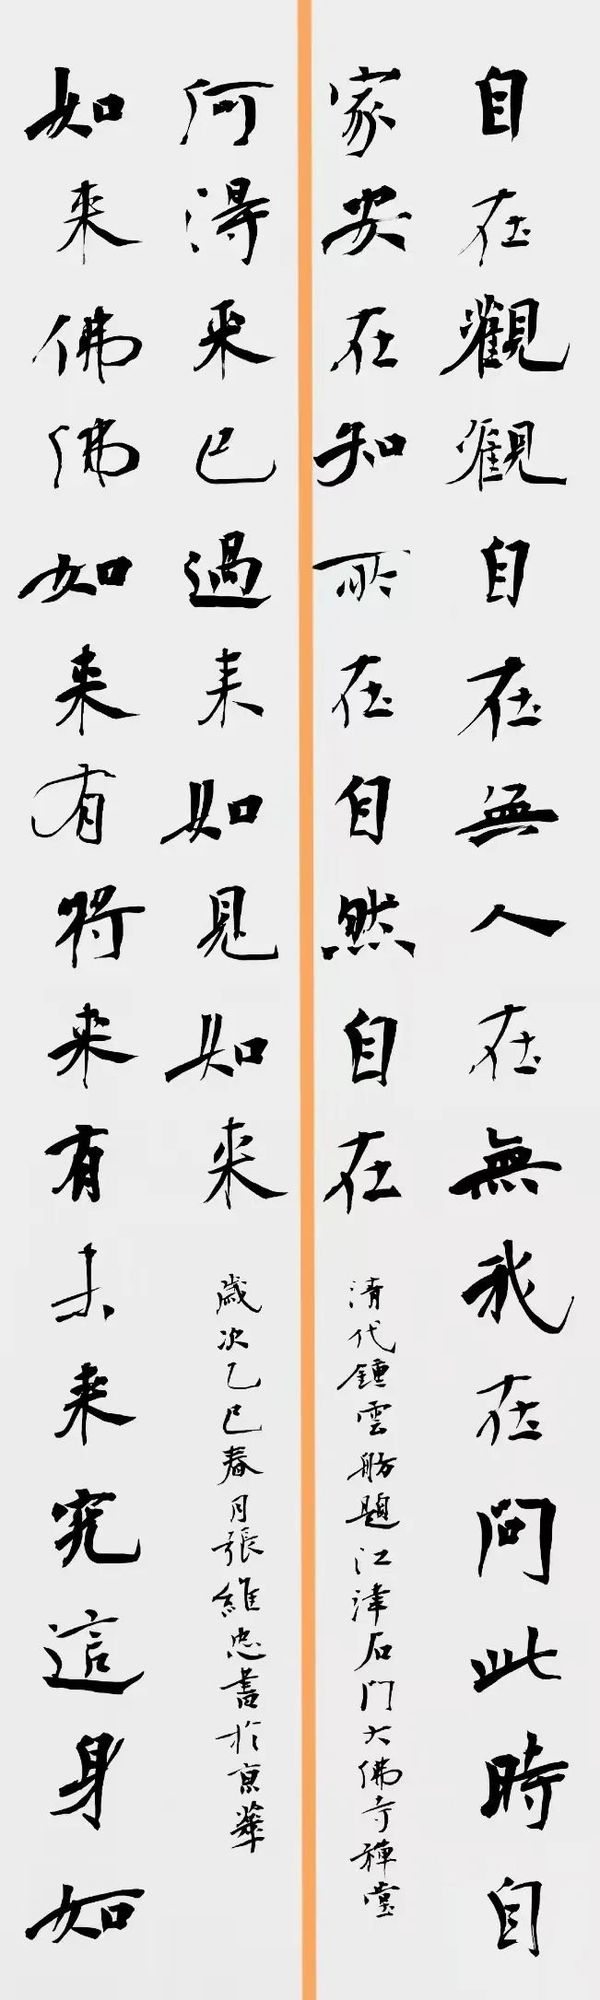 自在觀觀自在無人在無我在問此時自
家安在知所在自然自在
清代鍾雲舫題江津石門大佛寺禪堂
如来佛佛如来有將来有未来究這身如
何得来已過来如見如来
歲次乙巳春月張維忠書於京華